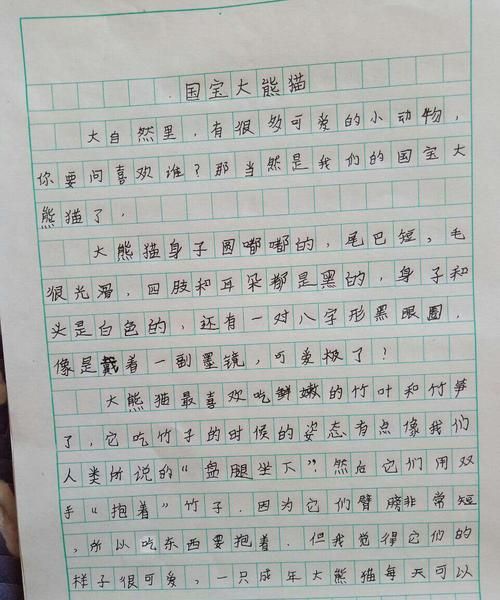 国宝大熊猫
大自然里，有很多可爱的小动物，
你要问喜欢谁？那当然是我们的国宝大
熊猫了．
大熊猫身子圆嘟嘟的，尾巴短，毛
很光滑，四肢和耳朵都是黑的，身子和
头是白色的，还有一对八字形黑眼圈，
像是戴着一副墨镜，可爱极了？
大熊猫最喜欢吃鲜嫩的竹叶和竹笋
了，它吃竹子的时候的姿态有点像我们
人类所说的“盘腿坐下”？然后它们用双
手“抱着”竹子．因为它们臂膀非常短
，所以吃东西要抱着．但我觉得它们的
样子很可爱，一只成年大熊猫每天可以